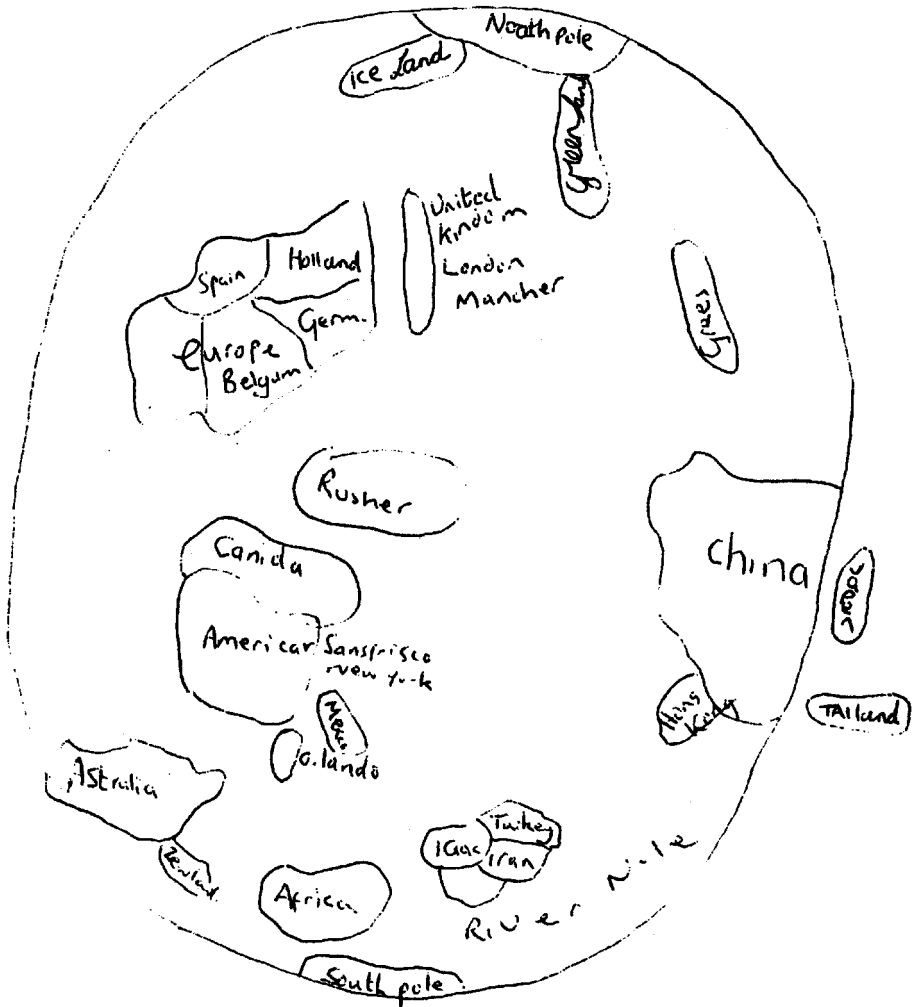 Noath pole
ice Land
Greenland
United
Kindom
London
Mancher
Spain
Holland
Germ.
europe
Belgum
Rusher
Canida
American
Sansfrisco
New York
China
Hong
Kong
TAIland
O.lando
Astralia
Africa
Turkey
Iran
RIVer Nile
South pole